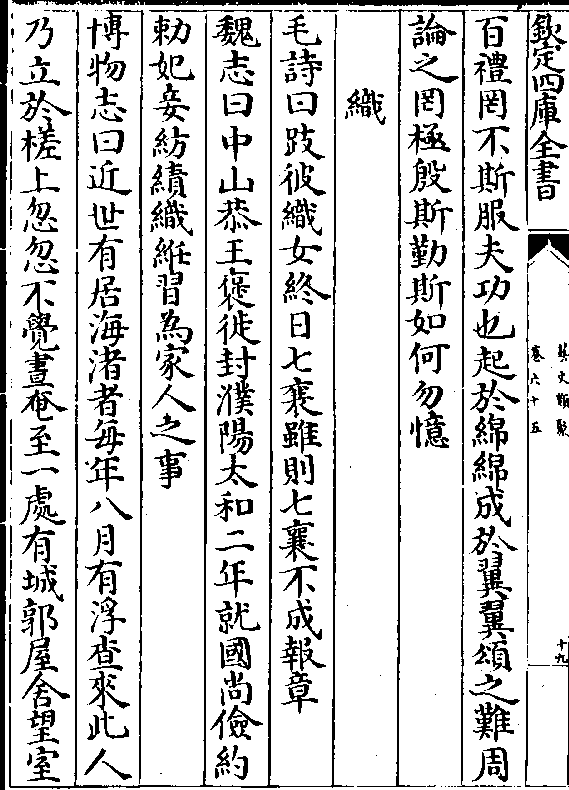 欽定四庫全書
藝文類聚
卷六十五
十九
百禮罔不斯服夫功也起於綿綿成於翼翼頌之難周
論之罔極殷斯勤斯如何勿憶
織
毛詩曰跂彼織女終日七襄雖則七襄不成報章
魏志曰中山恭王褒徙封濮陽太和二年就國尚儉約
勅妃妾紡績織絍習為家人之事
博物志曰近世有居海渚者每年八月有浮查來此人
乃立於槎上忽忽不覺晝奄至一處有城郭屋舍望室